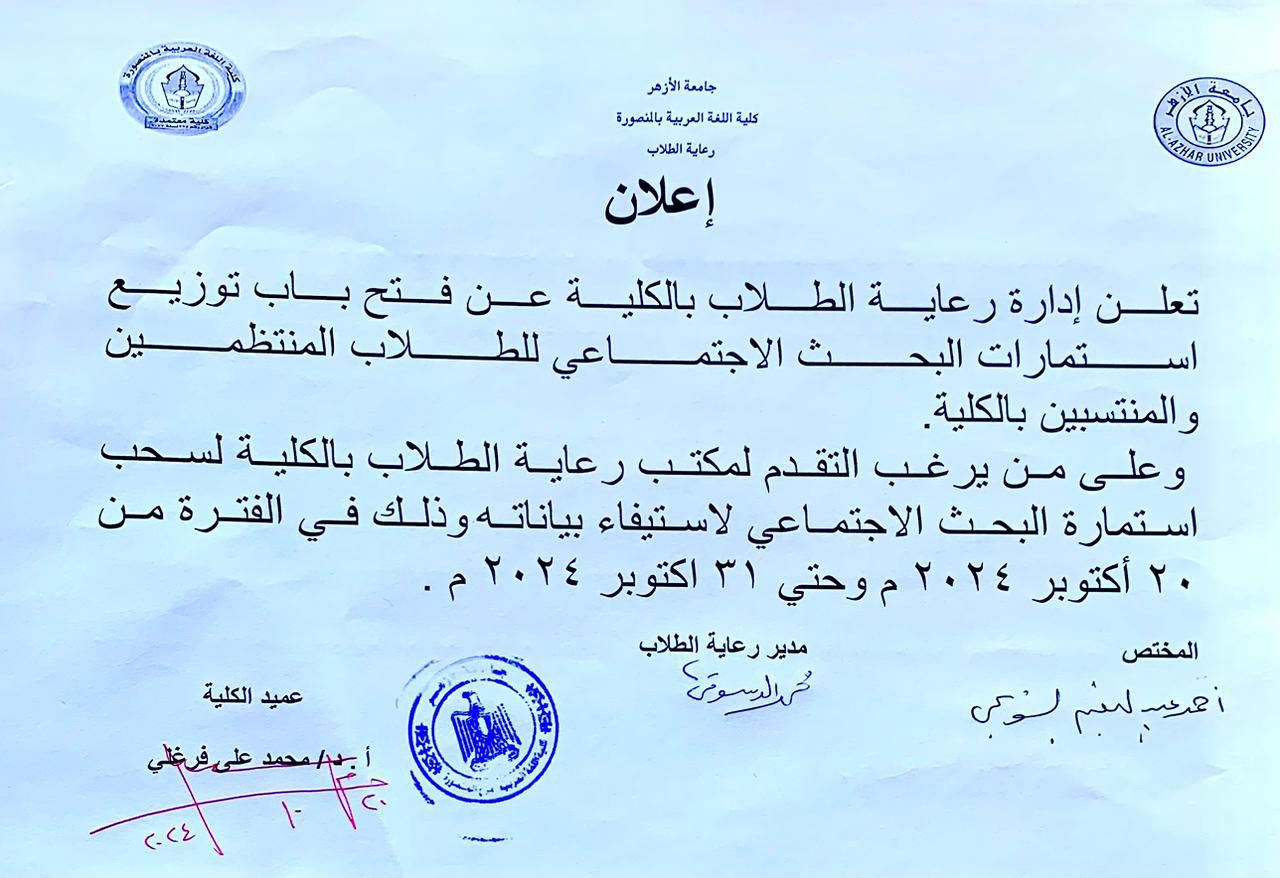 كلية اللغة العربية بالمنصورة
كلية معتمدة
جامعة الأزهر
AL-AZHAR UNIVERSITY
جامعة الأزهر
كلية اللغة العربية بالمنصورة
رعاية الطلاب
إعلان
تعلن إدارة رعاية الطلاب بالكلية عن فتح باب توزيع
استمارات البحث الاجتماعي للطلاب المنتظمين
والمنتسبين بالكلية.
وعلى من يرغب التقدم لمكتب رعاية الطلاب بالكلية لسحب
استمارة البحث الاجتماعي لاستيفاء بياناته وذلك في الفترة من
٢٠ أكتوبر ٢٠٢٤ م وحتي ٣١ اكتوبر ٢٠٢٤ م .
المختص
مدير رعاية الطلاب
عميد الكلية
محمد الدسوقي
أحمد عبد المنعم
أ.د/ محمد على فرغلي
٢٠
١٠
٢٠٢٤